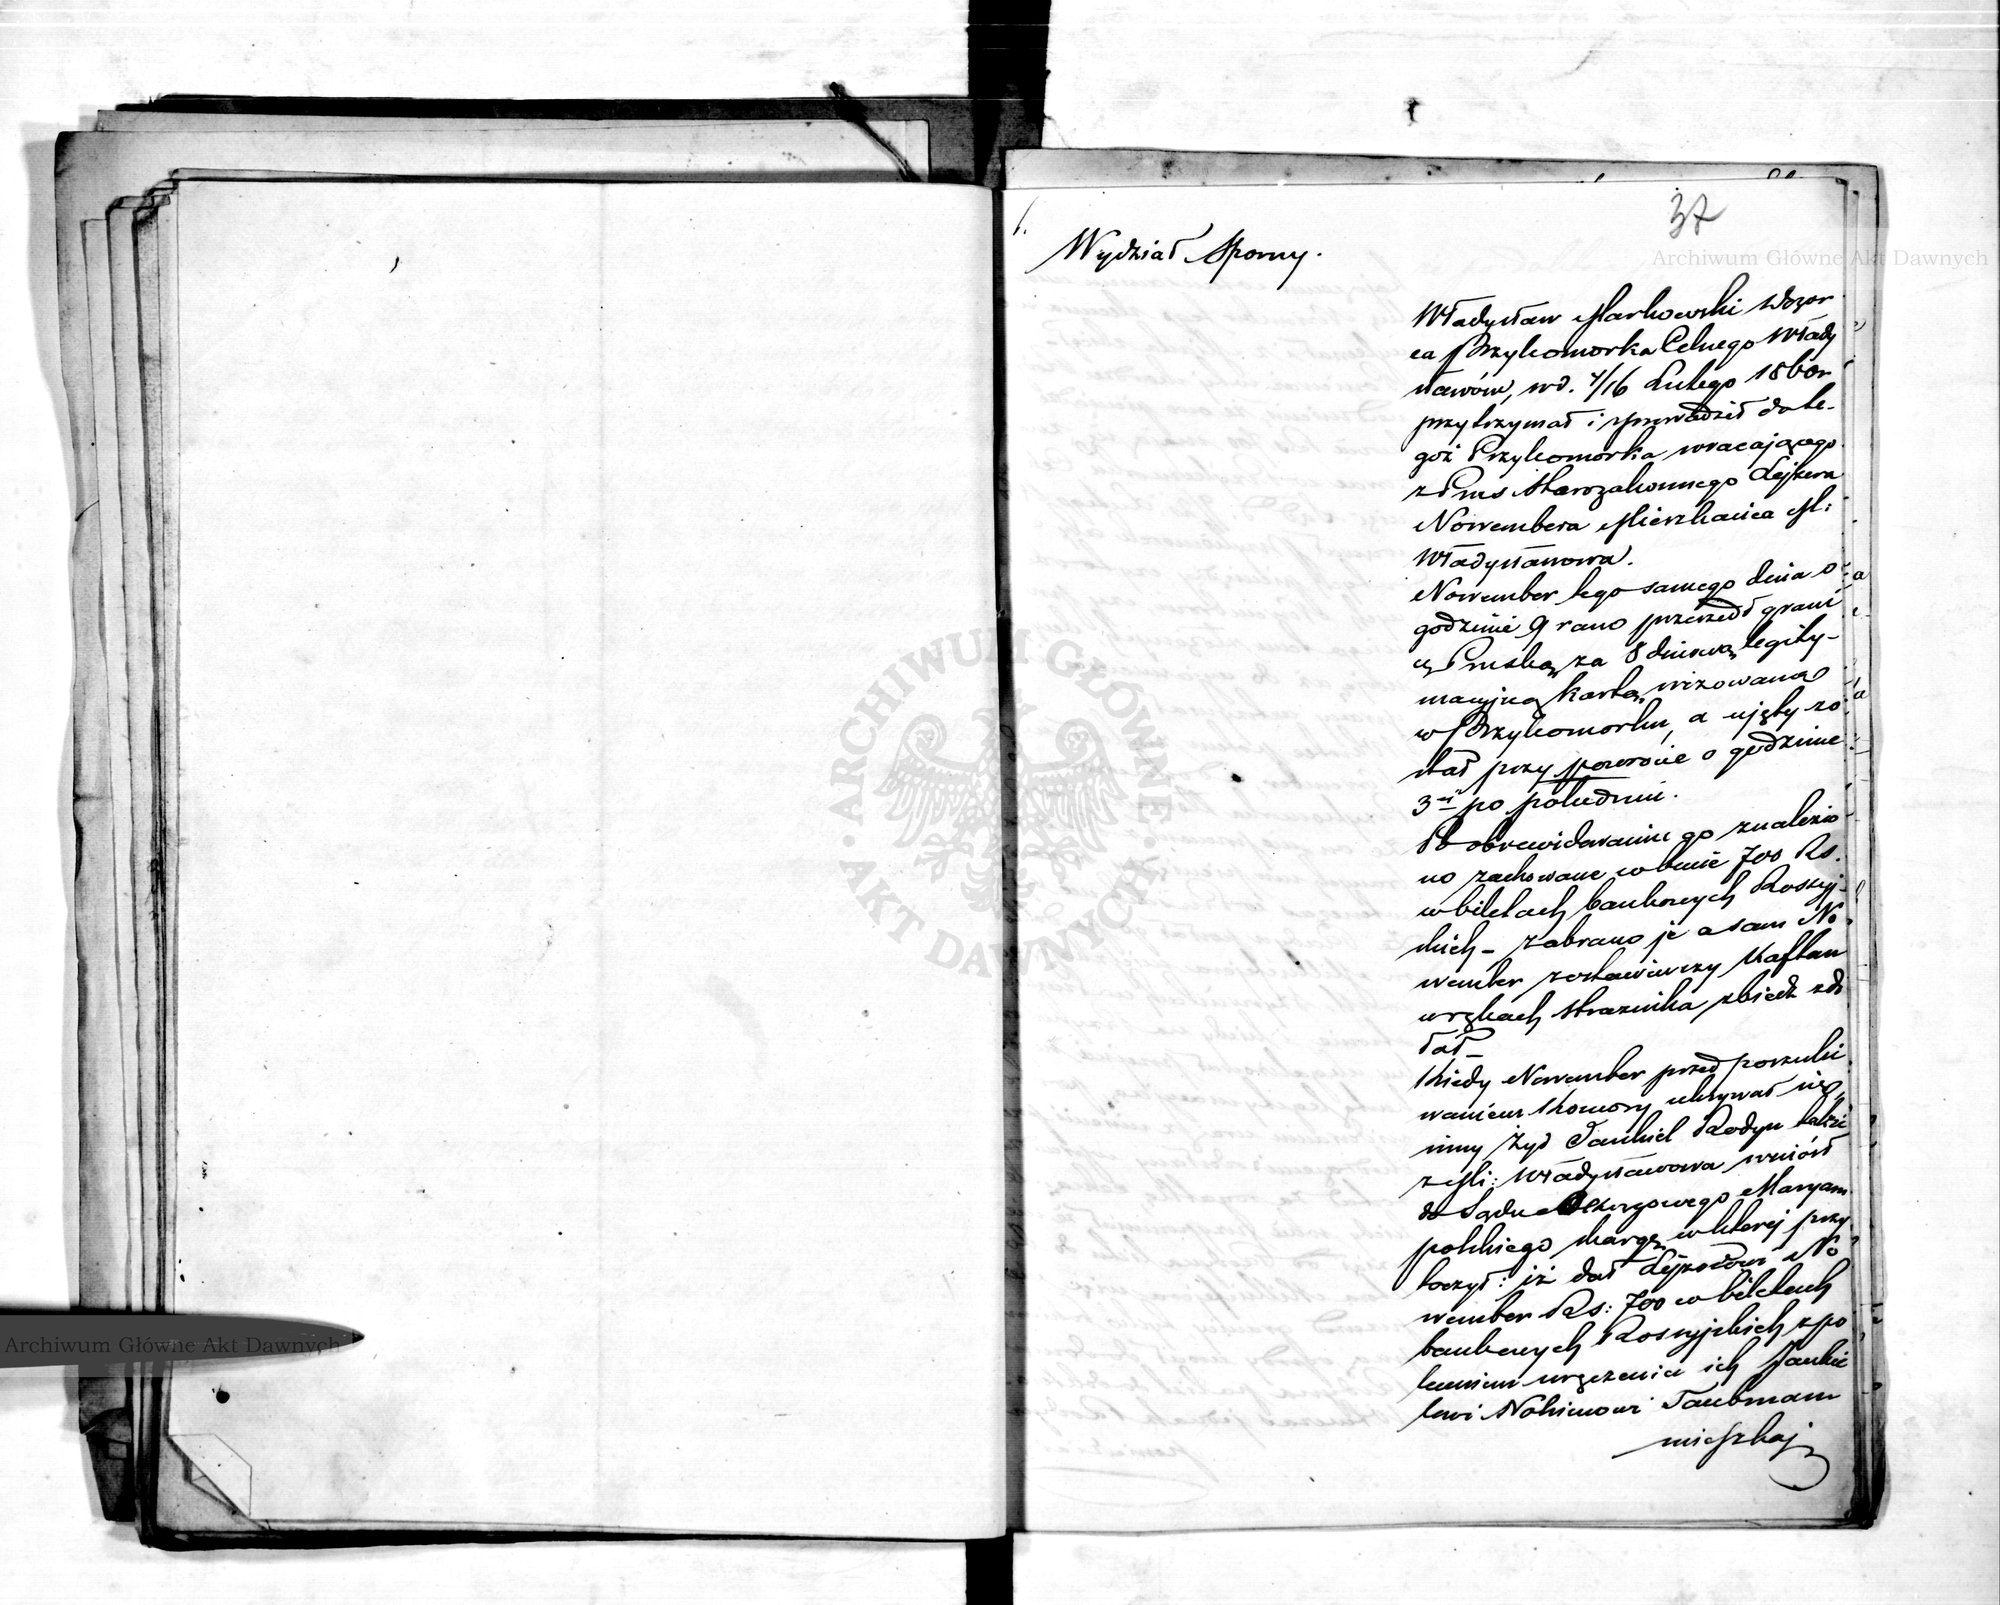 37
1.
Wydział Sporny.
Władysław Markowski dozor
ca Przykomorka Celnego Włady
sławów, w d. 4/16 Lutego 1860r
przytrzymał i sprowadził do te-
goż Przykomorka wracającego
z Prus Starozakonnego Lejzera
Novembera Mieszkańca M:
Władysławowa.
November tego samego dnia o
godzinie 9 rano przeszedł grani
cę Pruską za 8 dniową legity-
macyjną kartą wizowaną
w Przykomorku, a ujęty zo
stał przy powrócie o godzinie
3ej po południu.
Po obrewidowaniu go znalezio
no zachowane w bucie 700 Rs.
w biletach bankowych Rossyj-
skich – zabrano je a sam No
wember zostawiwszy Kaftan
w rękach strażnika zbiedz zdo
łał –
Kiedy November przed poszuki
waniem Komory ukrywał się,
inny Żyd Jankiel Rodyn także
z M: Władysławowa wniósł
do Sądu Okręgowego Maryam
polskiego skargę, w której przy
toczył: iż dał Lejzorowi No
wember Rs: 700 w biletach
bankowych Rossyjskich z po
leceniem wręczenia ich Jankie
lowi Nohimowi Taubman
mieszkaj
ARCHIWUM GŁÓWNE AKT DAWNYCH
Archiwum Główne Akt Dawnych
Archiwum Główne Akt Dawnych